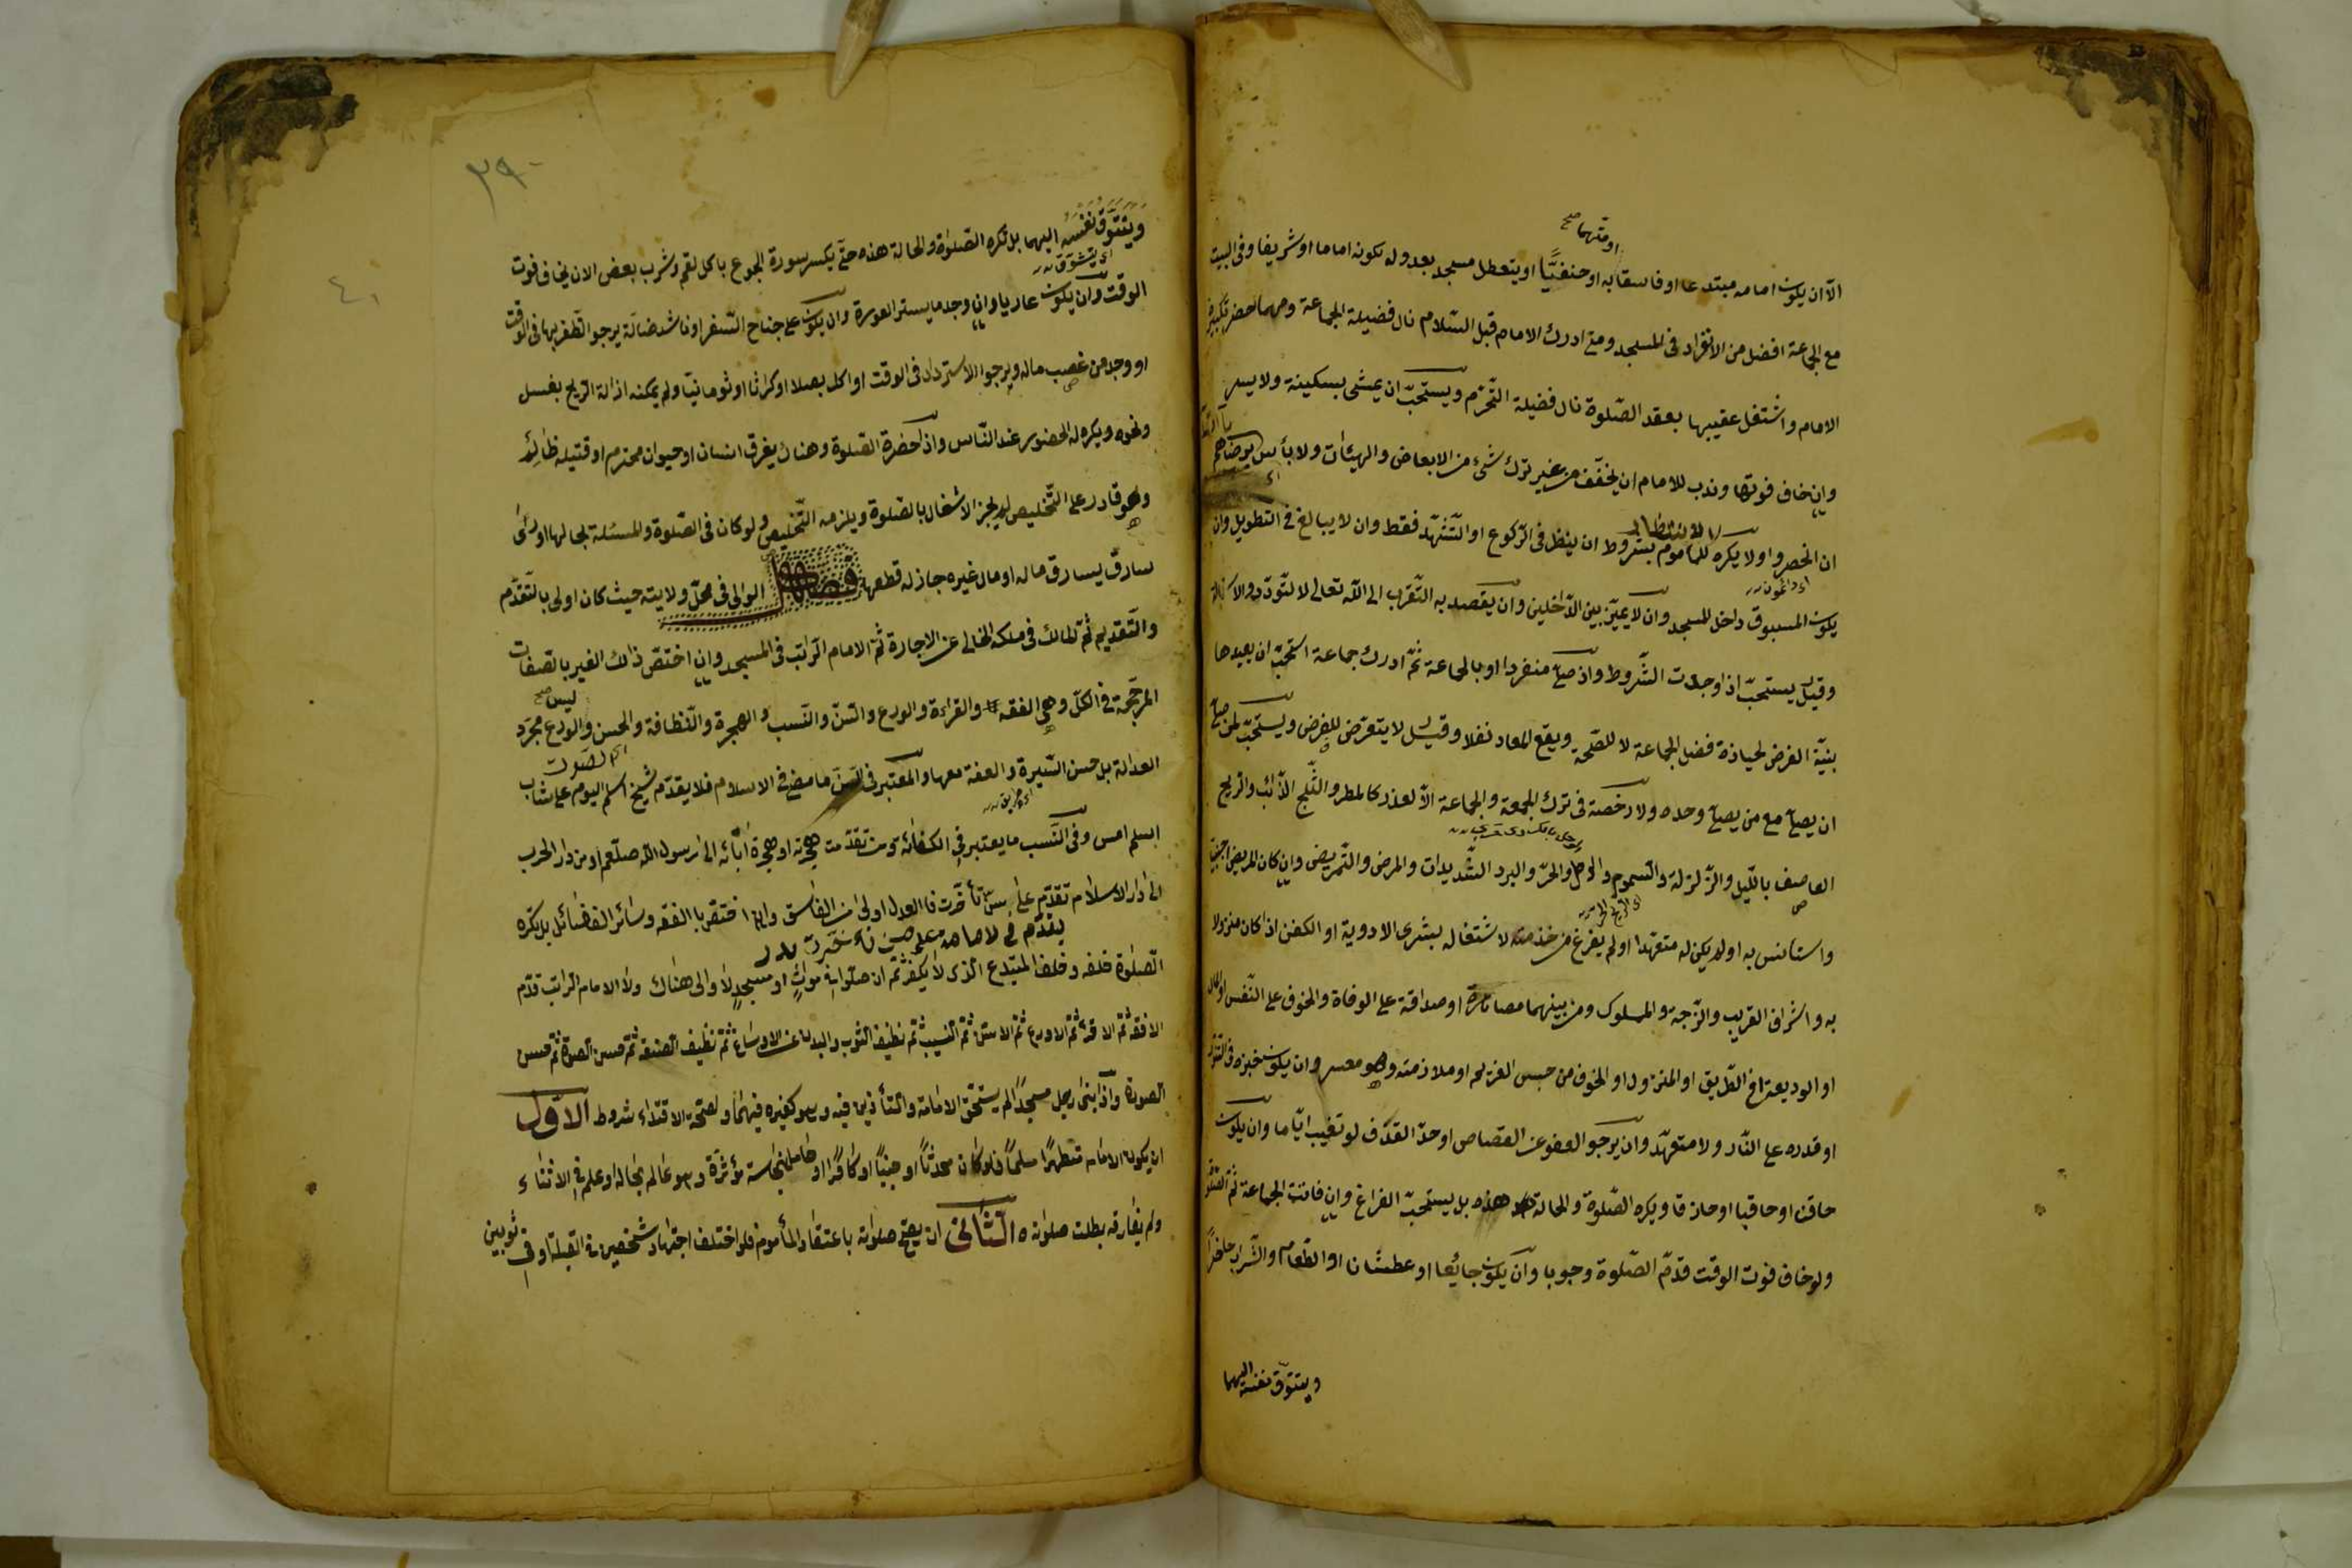 او متهما صح
الا ان يكون امامه مبتدعا او فاسقا به او حنفيًّا او يتعطل مسجد بعدوله لكونه اماما او شريفا وفى البيت
مع الجماعة افضل من الانفراد فى المسجد ومتى ادرك الامام قبل السّلام نال فضيلة الجماعة ومهما حضر تكبيرة
الامام واشتغل عقيبها بعقد الصّلوة نال فضيلة التّحرّم ويستحبّ ان يمشى بسكينة ولا يسرع
وان خاف فوتها وندب للامام ان يخفّف من غير ترك شئ من الابعاض والهيئات ولا بأس برضاهم
ان انحصروا ولا يكره للمأموم بشروط ان ينظر فى الرّكوع او التّشهّد فقط وان لا يبالغ فى التطويل وان
يكون المسبوق داخل المسجد وان لا يميّز بين الدّاخلين وان يقصد به التّقرب الى اللّه تعالى لا لتّودّد
وقيل يستحبّ اذا وجدت الشّروط واذ صلّى منفردا او بالجماعة ثمّ ادرك جماعة استحبّ ان يعيدها
بنيّة الفرض لحيازة فضل الجماعة لا للصّحّة ويقع المعاد نفلا وقيل لا يتعرّض للفرض ويستحبّ لمن صلّى
ان يصلّى مع من يصلّى وحده ولا رخصة فى ترك الجمعة والجماعة الاّ لعذر كالمطر والثّلج الذّائب والريح
العاصف باللّيل والزّلزلة والسّموم والوحل والحرّ والبرد الشّديدات والمرض والتّمريض وان كان المريض اجنبيّا
واستانس به او لم يكن له متعهّدا او لم يفرغ من خدمته لاشتغاله بشرى الادوية او الكفن اذا كان منزولا
به واشراف القريب والزّوجة والمملوك ومن بينهما مصاهرة او صداقة على الوفاة والخوف على النّفس او المال
او الوديعة فى الطّريق او المنزول او الخوف من حبس الغريم او ملازمته وهو معسر وان يكون خبزه فى التنّور
او قدره على النّار ولا متعهّد وان يرجو العفو عن القصاص او حدّ القذف لو تغيب ايّاما وان يكون
حاقنا او حاقبا او حازقا ويكره الصّلوة والحالة هذه بل يستحبّ الفراغ وان فاتت الجماعة ثم الصّلوة
ولو خاف فوت الوقت قدّم الصّلوة وجوبا وان يكون جائعا او عطشانا او الطّعام والشّراب حاضرًا
ويتتوق نفسه اليهما
٣٩
٤١
ويتتوّق نفسه اليهما بل تكره الصّلوة والحالة هذه حتّى يكسر سورة الجوع باكل لقم وشرب بعض الا ان يخاف فوت
اى يتشوّق
الوقت وان يكون عاريا وان وجد ما يستر العورة وان يكون على جناح السّفر او ناشد ضالّة يرجو الظّفر بها فى الوقت
او وجد من غصب ماله ويرجوا الاسترداد فى الوقت او اكل بصلا او كراثا او ثوما نيّا ولم يمكنه ازالة الريح بغسل
ونحوه ويكره له الحضور عند النّاس واذا حضرة الصّلوة وهناك يغرق انسان او حيوان محترم او قتيله ظالم
وهو قادر على التّخليص لم يجز الاشغال بالصّلوة ويلزمه التّخليص ولو كان فى الصّلوة والمسئلة بحالها او رأى
سارق يسارق ماله او مال غيره جاز له قطعها فصل الوالى فى محلّ ولايته حيث كان اولى بالتّقدّم
والتّقديم ثمّ المالك فى ملكه الخالى عن الاجارة ثمّ الامام الرّاتب فى المسجد وان اختصّ ذلك الغير بالصفات
المرجّحة فى الكلّ وهى الفقه والقراءة والورع والسّنّ والنّسب والهجرة والنّظافة والحسن والورع ليس مجرّد
اى الصوت
العدالة بل حسن السّيرة والعفة معها والمعتبر فى السّنّ ما مضى فى الاسلام فلا يقدّم شيخ اسلم اليوم على شاب
اسلم امس وفى النّسب ما يعتبر فى الكفائة ومن تقدّمت هجرته او هجرة ابائه الى رسول اللّه صلّعم او من دار الحرب
الى دار الاسلام تقدّم على من تأخّرت فالعدل اولى من الفاسق وان اختصّ بالفقه وسائر الفضائل بل يكره
يقدّم فى الامامة على من تأخّرت
الصّلوة خلفه وخلف المبتدع الّذى لا يكفر ثمّ ان صلّوا فى موات او مسجد لا والى هناك ولا الامام الرّاتب قدّم
الافقه ثمّ الاقرء ثمّ الاورع ثمّ الاسنّ ثمّ النّسيب ثمّ نظيف الثوب والبدن عن الاوساخ ثمّ نظيف الصنعة ثمّ حسن الصوت ثمّ حسن
الصورة واذا بنى رجل مسجدًا لم يستحقّ الامامة والتأذين فيه وهو كغيره فيهما ولصحّة الاقتداء شروط الاوّل
ان يكون الامام متطهرًا مسلمًا فلو كان محدثًا او جنبًا او كافرًا او حامل نجاسة مؤثرة وهو عالم بحاله او علم فى الاثناء
ولم يفارقه بطلت صلوته الثانى ان يصحّ صلوته باعتقاد المأموم فلو اختلف اجتهاد شخصين فى القبلة او فى ثوبين